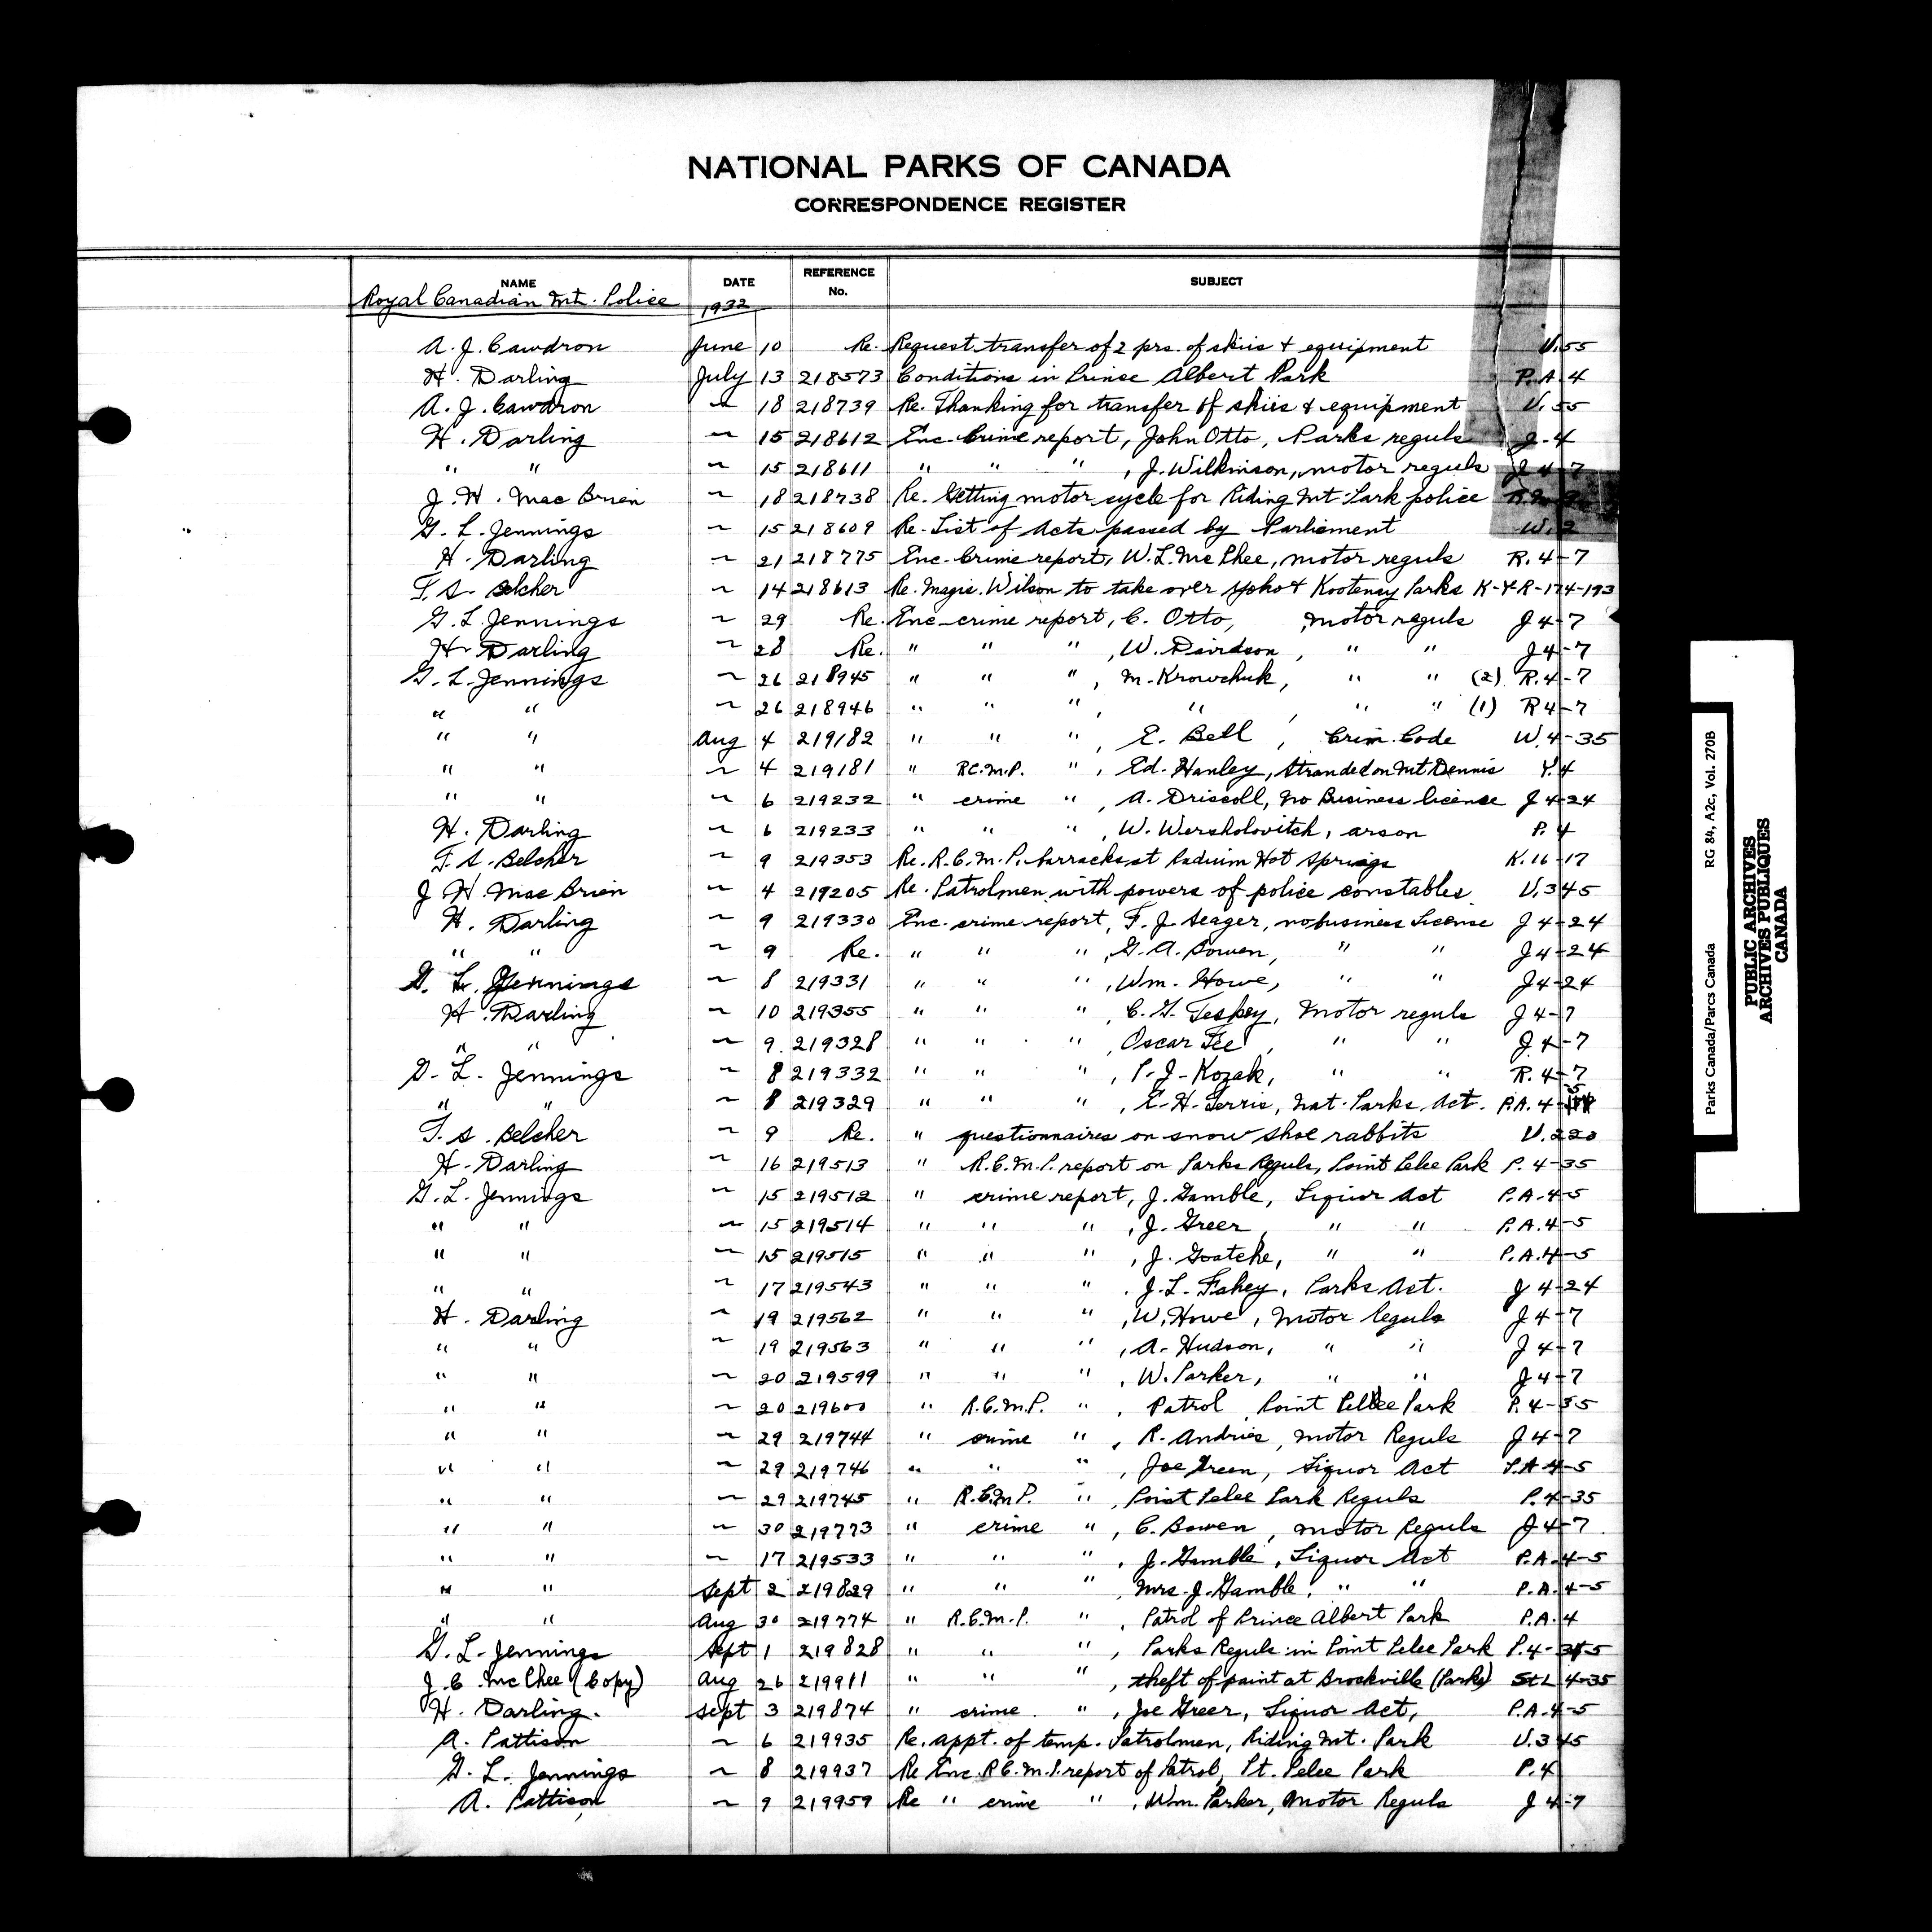 NATIONAL PARKS OF CANADA
CORRESPONDENCE REGISTER
NAME DATE REFERENCE No. SUBJECT
Royal Canadian Mt. Police 1932
A. J. Cawdron June 10 Re. Request transfer of 2 prs. of skiis & equipment U.55
H. Darling July 13 218573 Conditions in Prince Albert Park P.A.4
A. J. Cawdron ~ 18 218739 Re. Thanking for transfer of skiis & equipment U.55
H. Darling ~ 15 218612 Enc. Crime report, John Otto, Parks reguls J-4
" " ~ 15 218611 " " " , J. Wilkinson, motor reguls J4-7
J. H. MacBrien ~ 18 218738 Re. Getting motor cycle for Riding Mt. Park police
G. L. Jennings ~ 15 218609 Re. List of Acts passed by Parliament W.2
H. Darling ~ 21 218775 Enc. Crime report, W. L. McPhee, motor reguls R.4-7
T. S. Belcher ~ 14 218613 Re. Magis. Wilson to take over Yoho & Kootenay Parks K-Y-R-174-193
G. L. Jennings ~ 29 Re. Enc crime report, C. Otto, motor reguls J4-7
H. Darling ~ 28 Re. " " " , W. Davidson, " " J4-7
G. L. Jennings ~ 26 218945 " " " , M. Krowchuk, " " (2) R.4-7
" " ~ 26 218946 " " " , " , " " (1) R4-7
" " Aug 4 219182 " " " , E. Bell, Crim. Code W.4-35
" " ~ 4 219181 " R.C.M.P. " , Ed. Hanley, Stranded on Mt Dennis Y.4
" " ~ 6 219232 " crime " , A. Driscoll, no Business license J4-24
H. Darling ~ 6 219233 " " " , W. Wersholovitch, arson P.4
T. S. Belcher ~ 9 219353 Re. R.C.M.P. barracks at Radium Hot Springs K.16-17
J H. MacBrien ~ 4 219205 Re. Patrolmen with powers of police constables U.345
H. Darling ~ 9 219330 Enc. crime report, F. J. Seager, no business License J4-24
" " ~ 9 Re. " " " , G. A. Bowen, " " J4-24
G. L. Jennings ~ 8 219331 " " " , Wm. Howe, " " J4-24
H. Darling ~ 10 219355 " " " , C. G. Teskey, Motor reguls J4-7
" " ~ 9. 219328 " " " , Oscar Fee, " " J.4-7
G. L. Jennings ~ 8 219332 " " " , P. J. Kozak, " " R.4-7
" " ~ 8 219329 " " " , E. H. Ferris, Nat. Parks Act. P.A.4-
T. S. Belcher ~ 9 Re. " questionnaires on snow shoe rabbits U.220
H. Darling ~ 16 219513 " R.C.M.P. report on Parks Reguls, Point Pelee Park P.4-35
G. L. Jennings ~ 15 219512 " crime report, J. Gamble, Liquor Act P.A.4-5
" " ~ 15 219514 " " " , J. Greer, " " P.A.4-5
" " ~ 15 219515 " " " , J. Goatche, " " P.A.4-5
" " ~ 17 219543 " " " , J. L. Fahey, Parks Act. J4-24
H. Darling ~ 19 219562 " " " , W. Howe, Motor Reguls J4-7
" " ~ 19 219563 " " " , A. Hudson, " " J4-7
" " ~ 20 219599 " " " , W. Parker, " " J4-7
" " ~ 20 219600 " R.C.M.P. " , Patrol, Point Pelee Park P.4-35
" " ~ 29 219744 " crime " , R. Andries, Motor Reguls J4-7
" " ~ 29 219746 " " " , Joe Green, Liquor Act P.A4-5
" " ~ 29 219745 " R.C.M.P. " , Point Pelee Park Reguls P.4-35
" " ~ 30 219773 " crime " , C. Bowen, Motor Reguls J4-7
" " ~ 17 219533 " " " , J. Gamble, Liquor Act P.A.4-5
" " Sept 2 219829 " " " , Mrs. J. Gamble, " " P.A.4-5
" " Aug 30 219774 " R.C.M.P. " , Patrol of Prince Albert Park P.A.4
G. L. Jennings Sept 1 219828 " " " , Parks Reguls in Point Pelee Park
J. C. McPhee (Copy) Aug 26 219911 " " " , theft of paint at Brockville (Parks) St L 4-35
H. Darling. Sept 3 219874 " crime " , Joe Greer, Liquor Act, P.A.4-5
A. Pattison ~ 6 219935 Re. appt. of temp. Patrolmen, Riding Mt. Park U.345
G. L. Jennings ~ 8 219937 Re Enc. R.C.M.P. report of Patrol, Pt. Pelee Park P.4
A. Pattison ~ 9 219959 Re " crime " , Wm. Parker, Motor Reguls J4-7
Parks Canada/Parcs Canada RG 84, A2c, Vol. 270B
PUBLIC ARCHIVES
ARCHIVES PUBLIQUES
CANADA